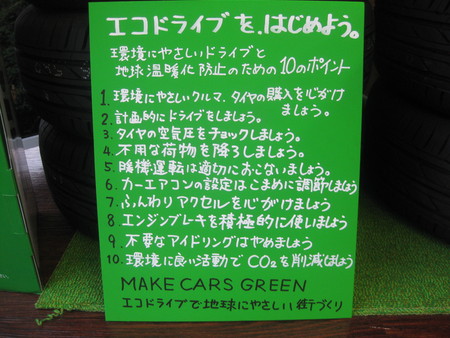 エコドライブを、はじめよう。
環境にやさしいドライブと
地球温暖化防止のための10のポイント
1. 環境にやさしいクルマ、タイヤの購入を心がけ
ましょう。
2. 計画的にドライブをしましょう。
3. タイヤの空気圧をチェックしましょう。
4. 不用な荷物を降ろしましょう。
5. 暖機運転は適切におこないましょう。
6. カーエアコンの設定はこまめに調節しましょう
7. ふんわりアクセルを心がけましょう
8 エンジンブレーキを積極的に使いましょう
9. 不要なアイドリングはやめましょう
10. 環境に良い活動でCO2を削減しましょう
MAKE CARS GREEN
エコドライブで地球にやさしい街づくり